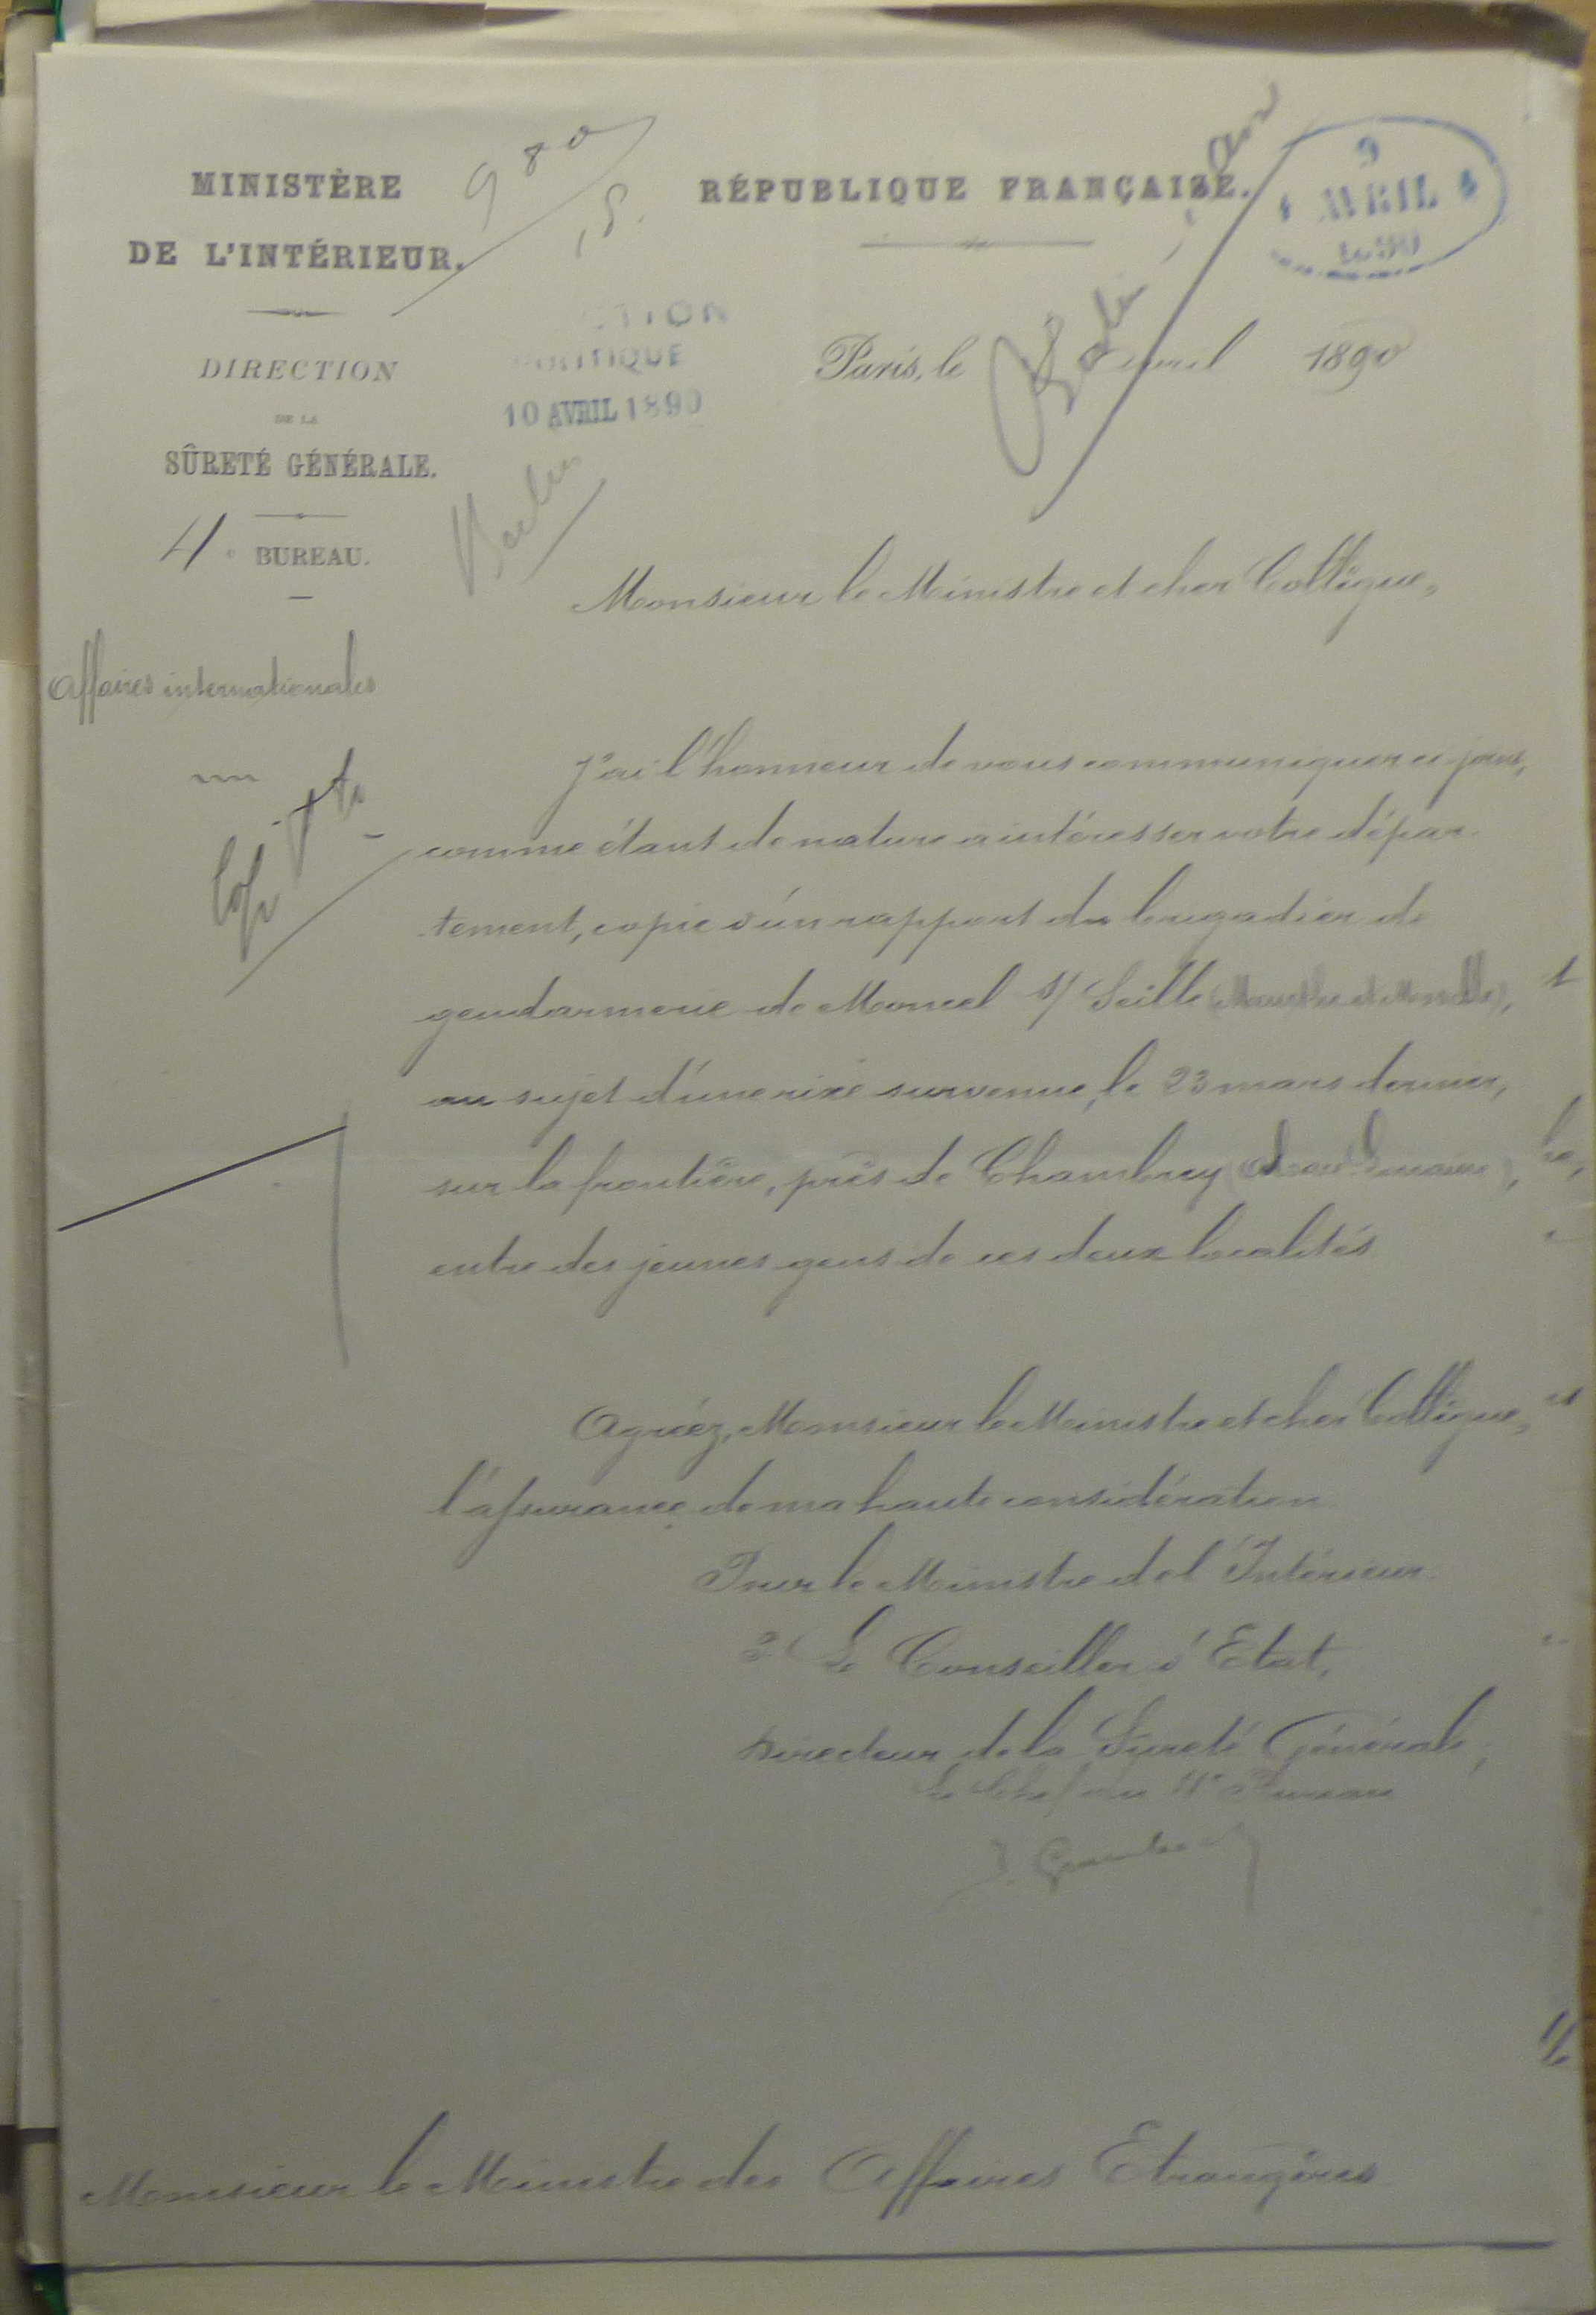 MINISTÈRE
DE L'INTÉRIEUR.
DIRECTION
DE LA
SÛRETÉ GÉNÉRALE.
4e BUREAU.
Affaires internationales
980
RÉPUBLIQUE FRANÇAISE.
9
AVRIL
1890
POLITIQUE
10 AVRIL 1890
Paris, le avril 1890
Monsieur le Ministre et cher Collègue,
J'ai l'honneur de vous communiquer ci-joint,
comme étant de nature à intéresser votre dépar-
tement, copie d'un rapport du brigadier de
gendarmerie de Moncel s/ Seille (Meurthe et Moselle),
au sujet d'une rixe survenue, le 23 mars dernier,
sur la frontière, près de Chambrey (Alsace Lorraine),
entre des jeunes gens de ces deux localités.
Agréez, Monsieur le Ministre et cher Collègue,
l'assurance de ma haute considération
Pour le Ministre de l'Intérieur
Le Conseiller d'Etat,
Directeur de la Sureté Générale,
Le Chef du 4e Bureau
Monsieur le Ministre des Affaires Etrangères